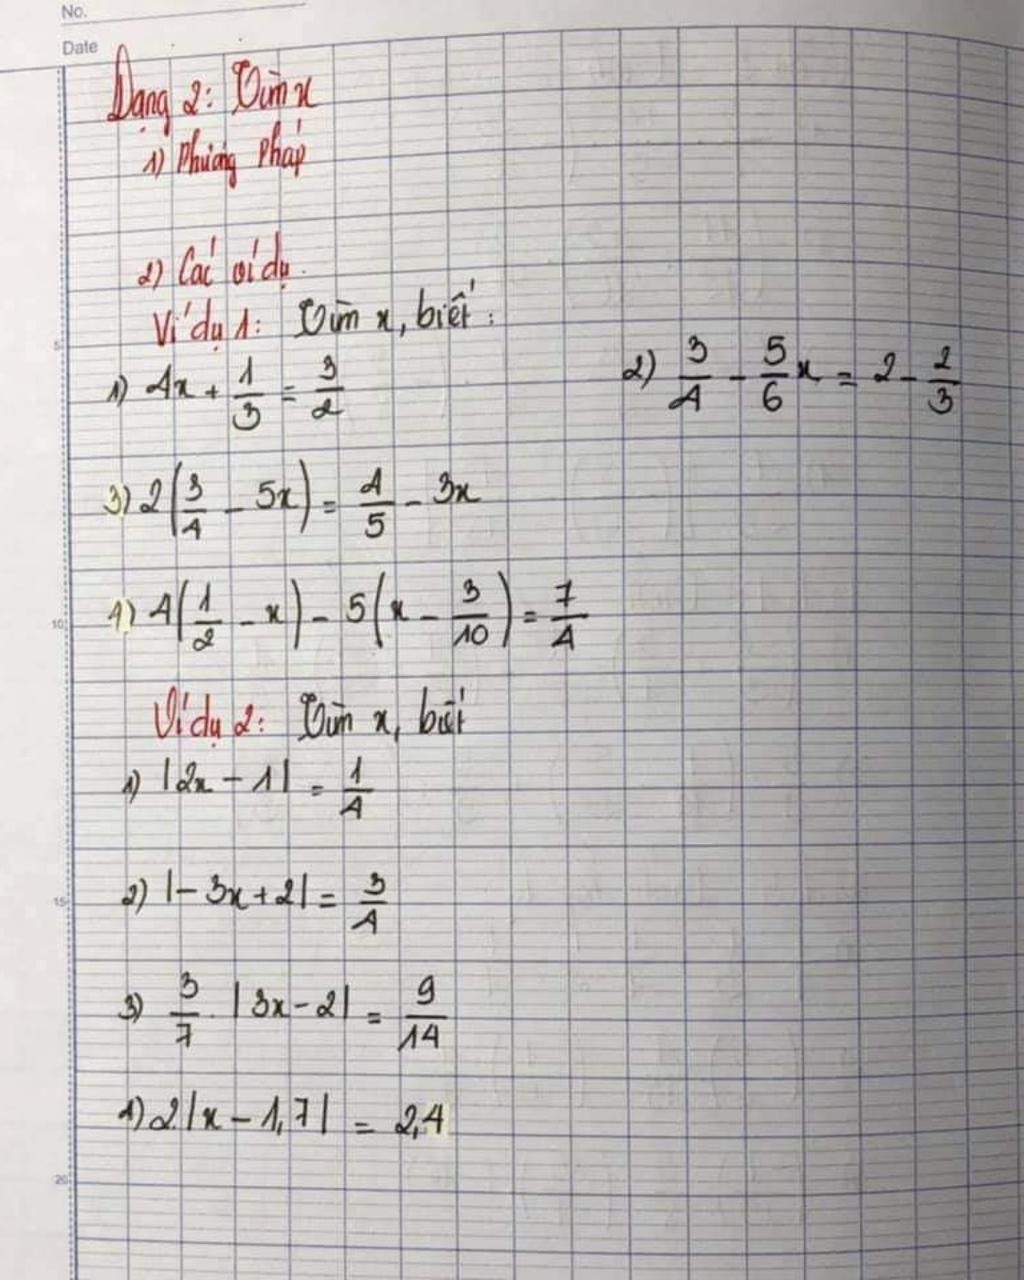 No.
Date
Dạng 2: Tìm x
1) Phương pháp
2) Các ví dụ.
Ví dụ 1: Tìm x, biết:
1) 4x + 1/3 = 3/2
2) 3/4 - 5/6 x = 2 - 2/3
3) 2(3/4 - 5x) = 4/5 - 3x
4) 4(1/2 - x) - 5(x - 3/10) = 7/4
Ví dụ 2: Tìm x, biết
1) |2x - 1| = 1/4
2) |-3x + 2| = 3/4
3) 3/7 . |3x - 2| = 9/14
4) 2|x - 1,7| = 2,4
5
10
15
20